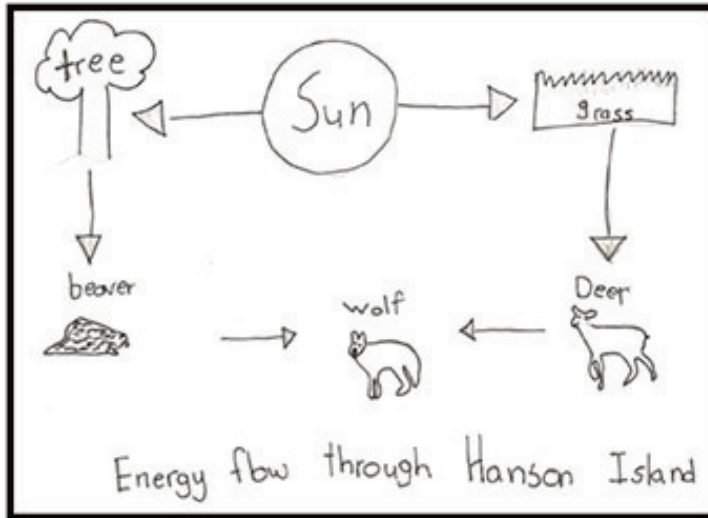 tree
Sun
grass
beaver
wolf
Deer
Energy flow through Hanson Island